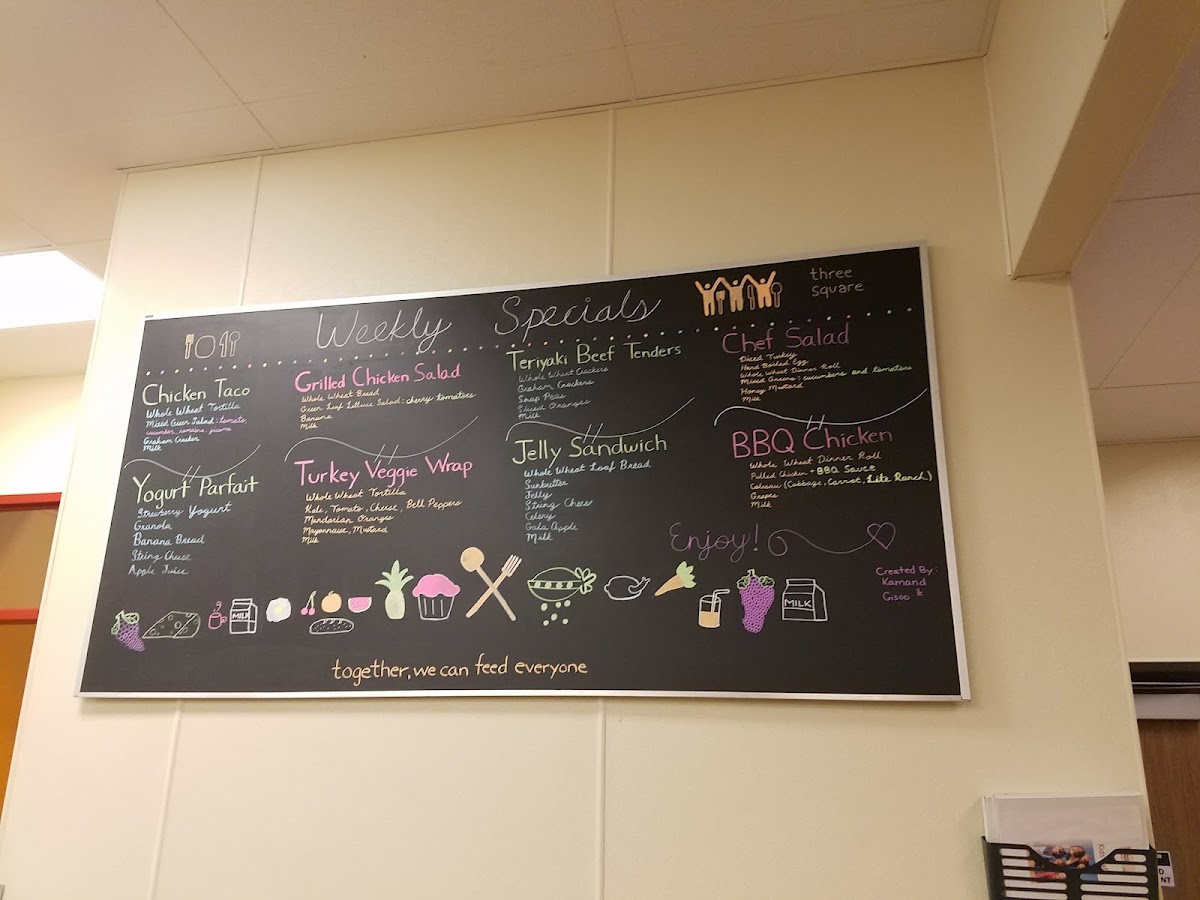 Weekly Specials
three
square
Chicken Taco
Whole Wheat Tortilla
Mixed Green Salad: tomato,
cucumber, romaine, jicama
Graham Cracker
Milk
Grilled Chicken Salad
Whole Wheat Bread
Green Leaf Lettuce Salad: cherry tomatoes
Banana
Milk
Teriyaki Beef Tenders
Whole Wheat Crackers
Graham Crackers
Snap Peas
Sliced Oranges
Milk
Chef Salad
Diced Turkey
Hard Boiled Egg
Whole Wheat Dinner Roll
Mixed Greens: cucumbers and tomatoes
Honey Mustard
Milk
Yogurt Parfait
Strawberry Yogurt
Granola
Banana Bread
String Cheese
Apple Juice
Turkey Veggie Wrap
Whole Wheat Tortilla
Kale, Tomato, Cheese, Bell Peppers
Mandarian Oranges
Mayonnaise, Mustard
Milk
Jelly Sandwich
Whole Wheat Loaf Bread
Sunbutter
Jelly
String Chees
Celery
Gala Apple
Milk
BBQ Chicken
Whole Wheat Dinner Roll
Pulled Chicken + BBQ Sauce
Coleslaw (Cabbage, Carrot, Lite Ranch)
Grapes
Milk
Enjoy!
Created By:
Kamand
&
Gisoo
MILK
MILK
together, we can feed everyone